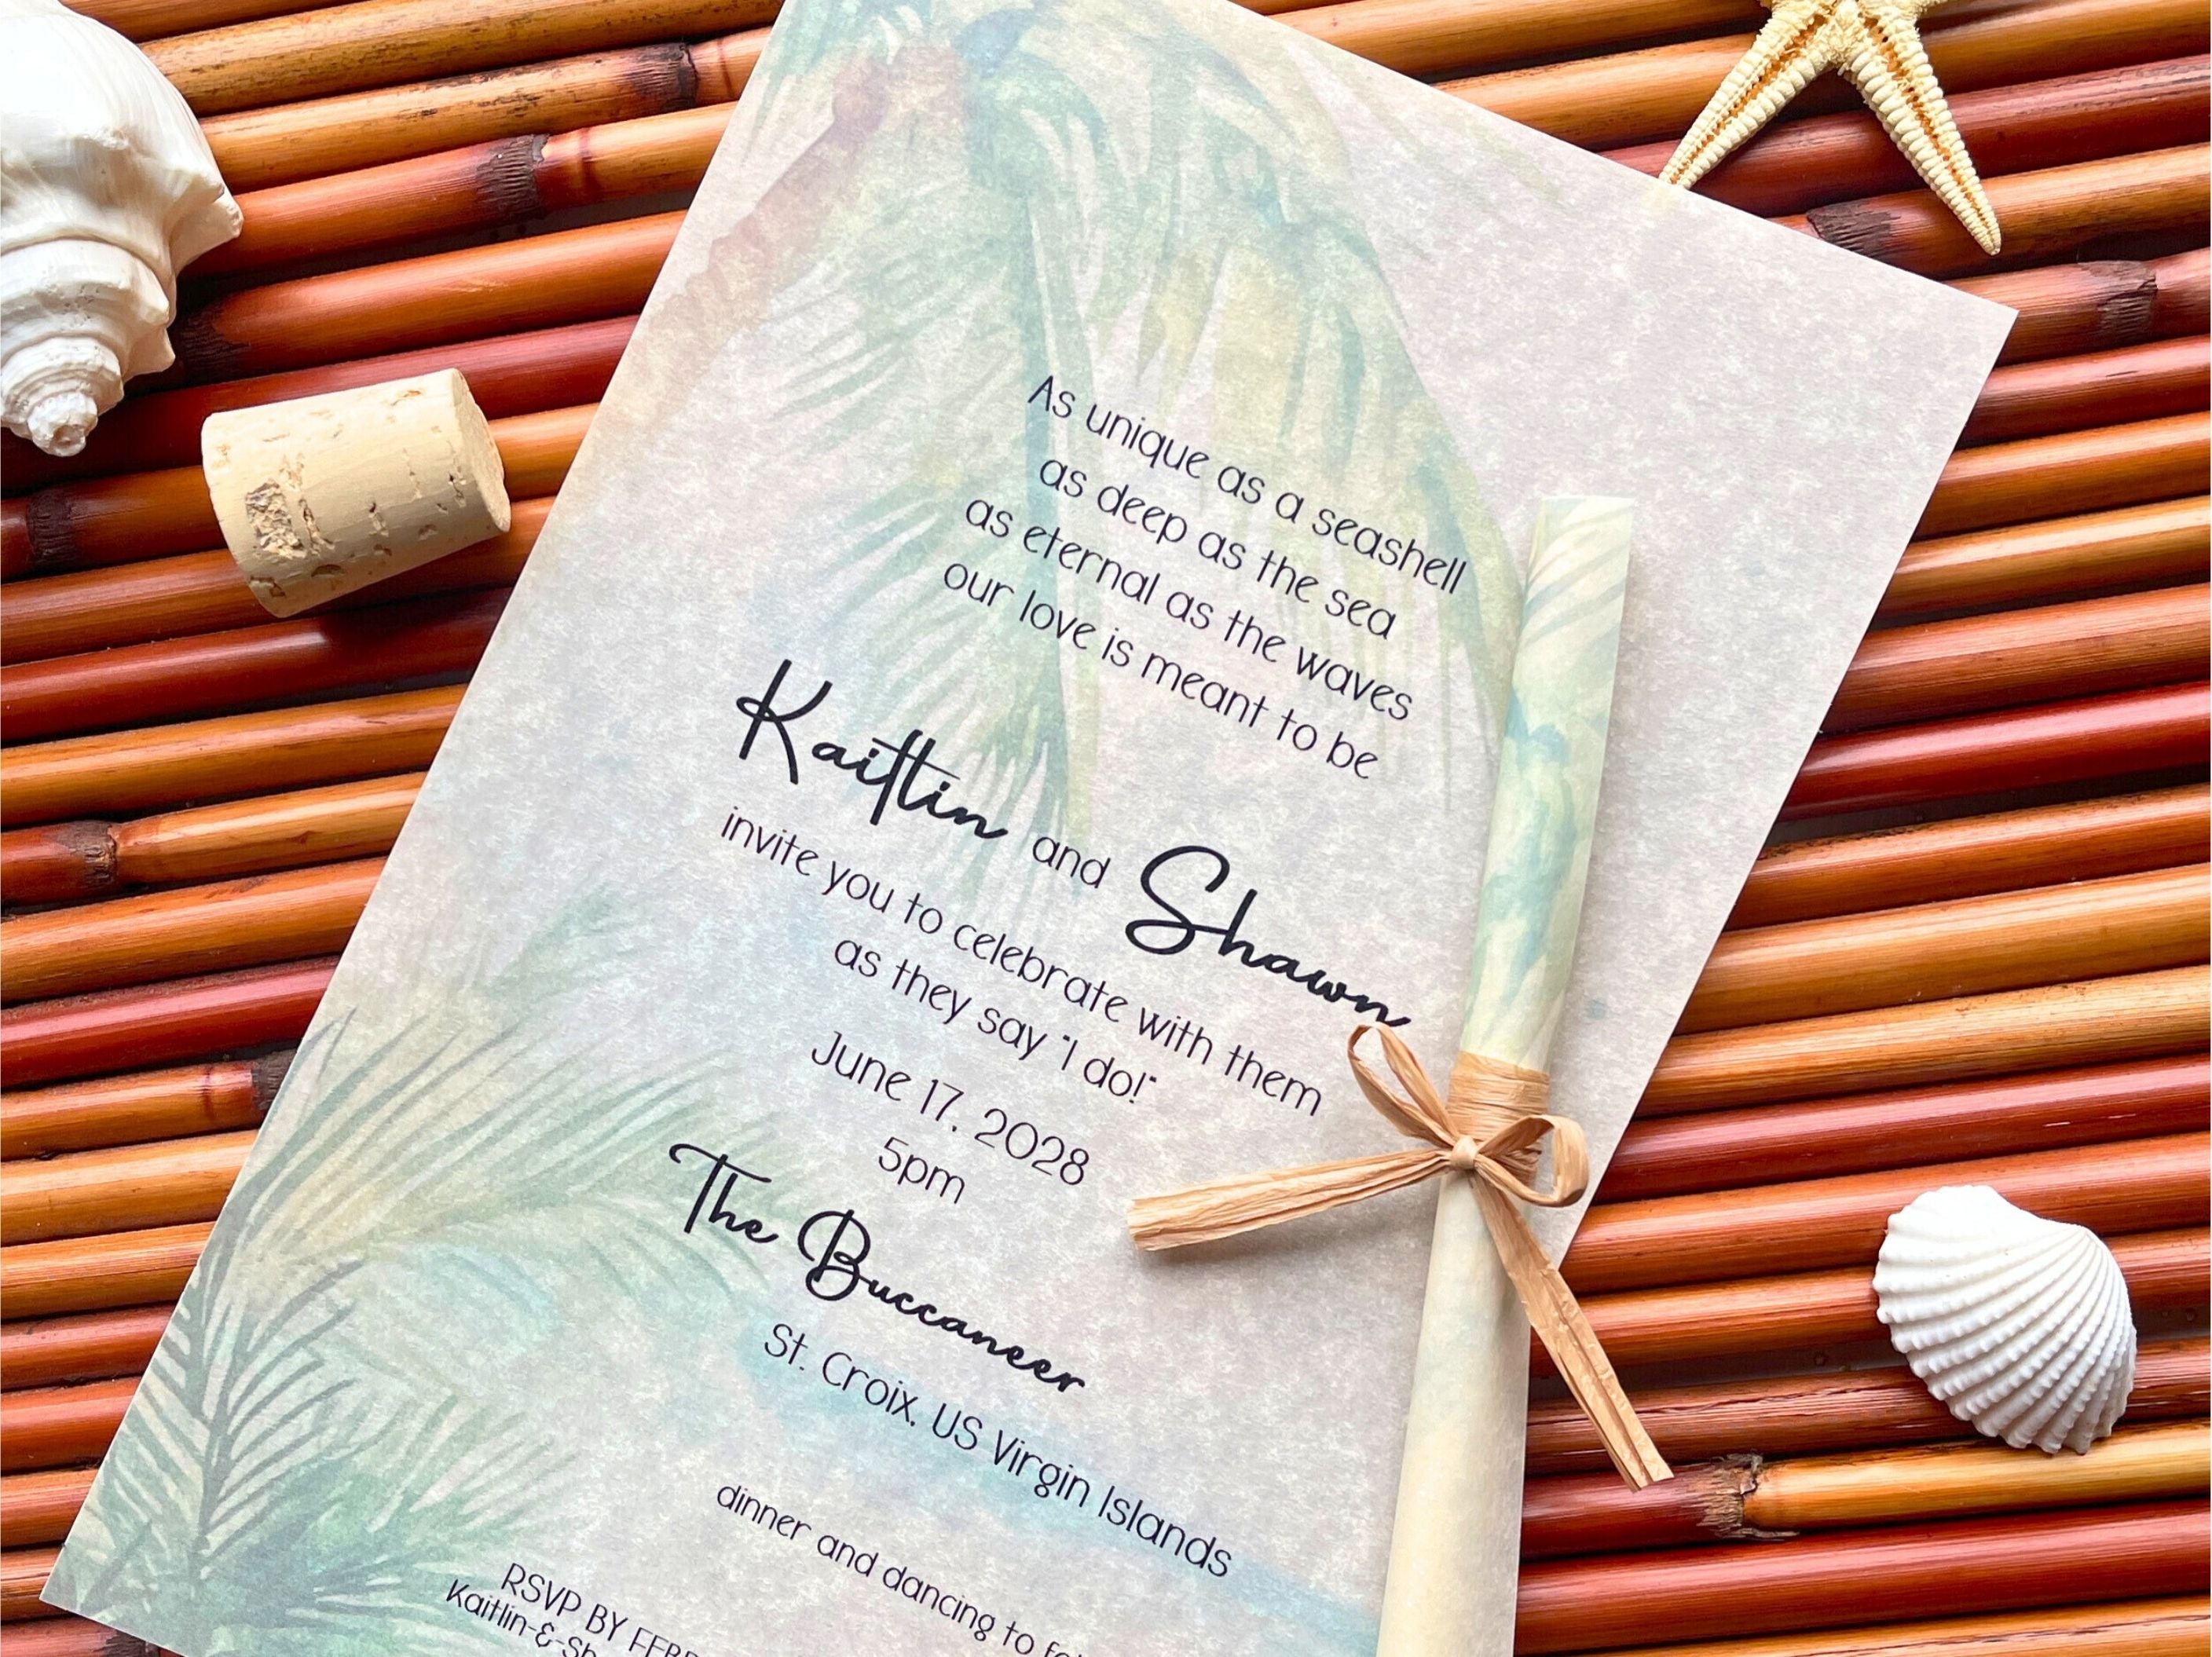 As unique as a seashell
as deep as the sea
as eternal as the waves
our love is meant to be
Kaitlin and Shawn
invite you to celebrate with them
as they say "I do!"
June 17, 2028
5pm
The Buccaneer
St. Croix, US Virgin Islands
dinner and dancing to
RSVP BY
Kaitlin-&-Sh